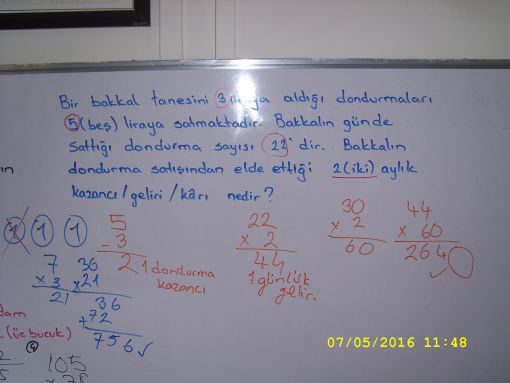 Bir bakkal tanesini 3 liraya aldığı dondurmaları
5 (beş) liraya satmaktadır. Bakkalın günde
sattığı dondurma sayısı 22' dir. Bakkalın
dondurma satışından elde ettiği 2(iki) aylık
kazancı/geliri/kârı nedir?
1 1 1
5
- 3
2
1 dondurma
kazancı
22
x 2
44
1 günlük
gelir.
30
x 2
60
44
x 60
2640
7
x 3
21
36
x 21
36
+72
756
(üç buçuk)
105
07/05/2016 11:48